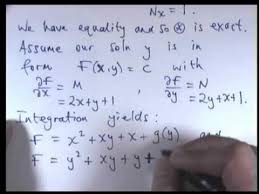 Nx = 1.
We have equality and so ⊛ is exact.
Assume our soln y is in
form F(x,y) = C with
∂F/∂x = M ∂F/∂y = N
= 2x+y+1 = 2y+x+1.
Integration yields:
F = x² + xy + x + g(y) and
F = y² + xy + y +